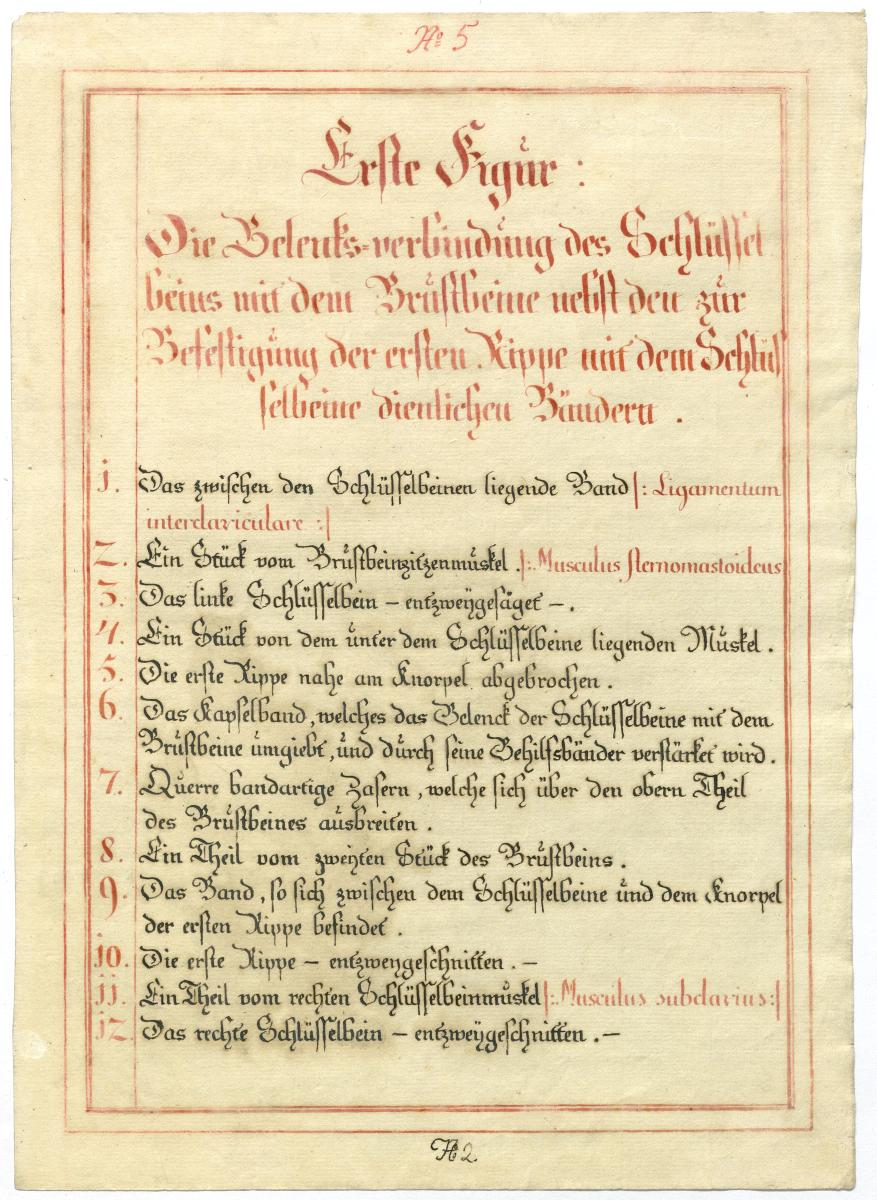 No 5
Erste Figur:
Die Gelenks-verbindung des Schlüssel
beins mit dem Brustbeine nebst den zur
Befestigung der ersten Rippe mit dem Schlüs
selbeine dienlichen Bändern .
1. Das zwischen den Schlüsselbeinen liegende Band |: Ligamentum
interclaviculare :|
2. Ein Stück vom Brustbeinzitzenmuskel . |: Musculus sternomastoideus
3. Das linke Schlüsselbein – entzweygesäget – .
4. Ein Stück von dem unter dem Schlüsselbeine liegenden Muskel .
5. Die erste Rippe nahe am Knorpel abgebrochen .
6. Das Kapselband, welches das Gelenck der Schlüsselbeine mit dem
Brustbeine umgiebt, und durch seine Behilfsbänder verstärket wird .
7. Querre bandartige Zasern, welche sich über den obern Theil
des Brustbeines ausbreiten .
8. Ein Theil vom zweyten Stück des Brustbeins .
9. Das Band, so sich zwischen dem Schlüsselbeine und dem Knorpel
der ersten Rippe befindet .
10. Die erste Rippe – entzweygeschnitten . –
11. Ein Theil vom rechten Schlüsselbeinmuskel |: Musculus subclavius :|
12. Das rechte Schlüsselbein – entzweygeschnitten . –
No 2